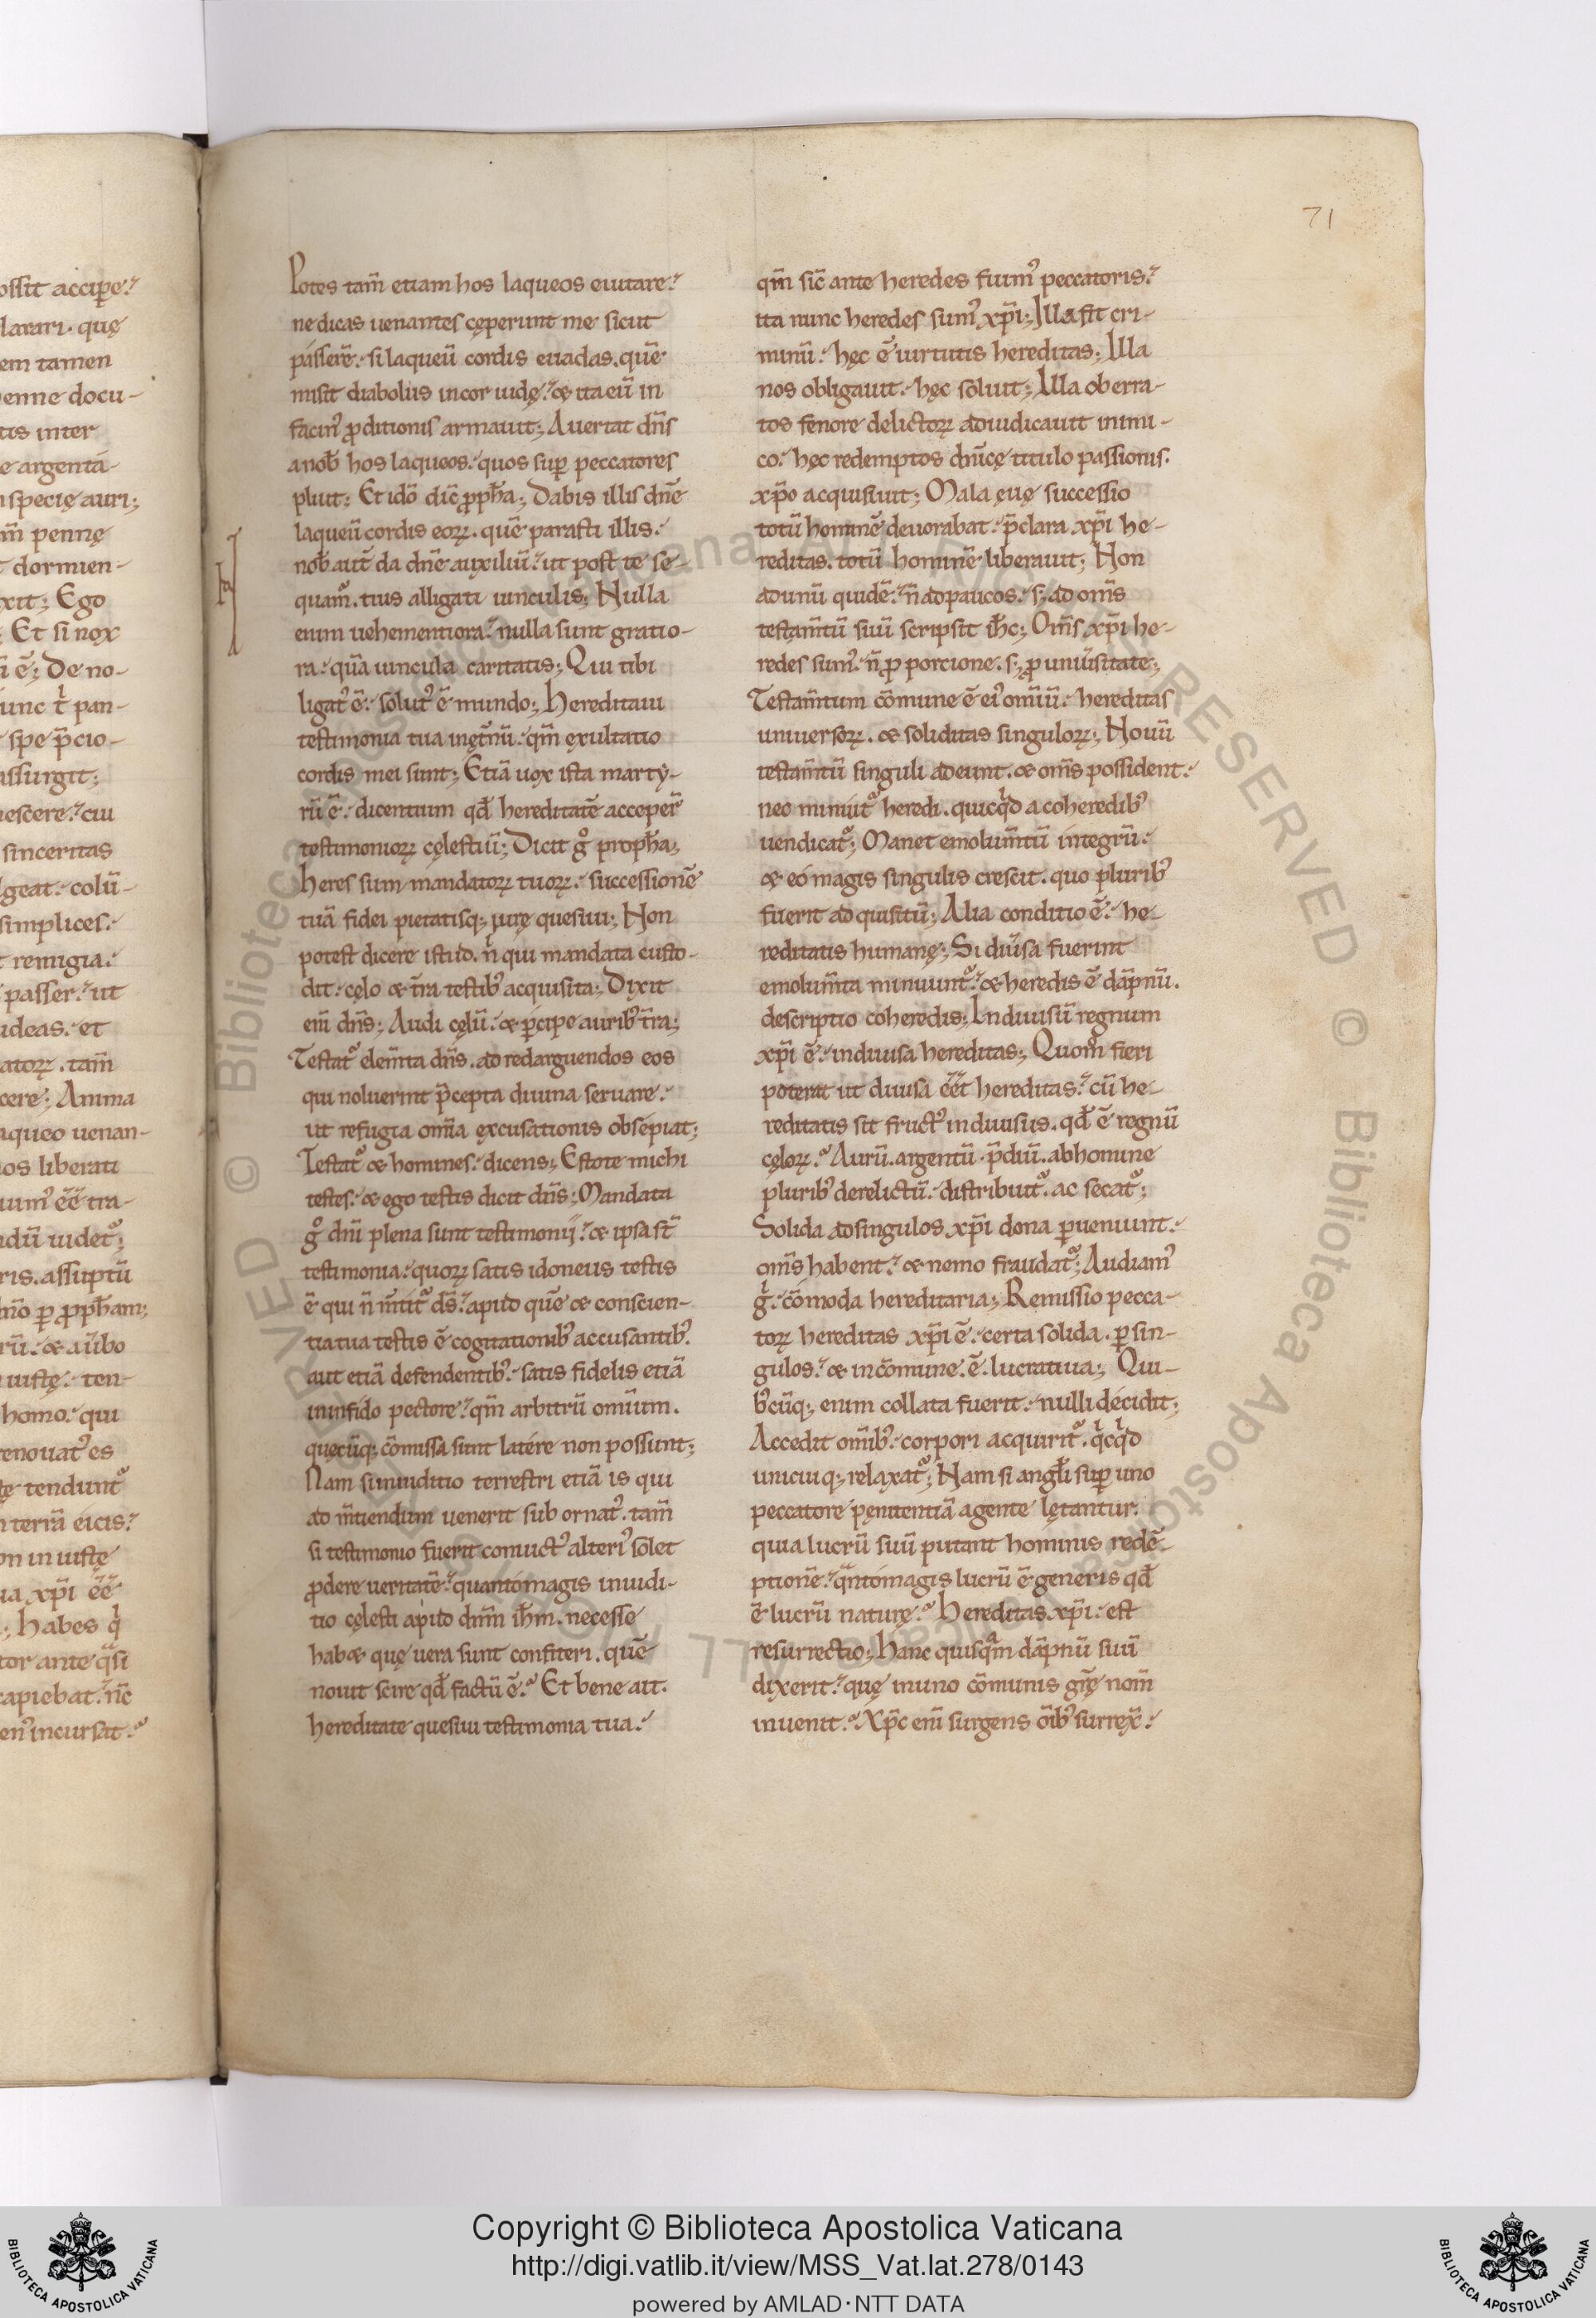 71
Potes tam̄ etiam hos laqueos euitare.
ne dicas uenantes cęperunt me sicut
passerē. si laqueū cordis euadas. quē
misit diabolus in cor iudę. & ita eū in
facin᾽ ꝓditionis armauit; Auertat dn̄s
a nob̄ hos laqueos. quos suꝑ peccatores
pluit; Et idō dic̄ ꝓph̄a; Dabis illis dn̄e
laqueū cordis eoꝝ. quē parasti illis.
nob̄ aut̄ da dn̄e auxiliū. ut post te se-
quam᷒. tuis alligati uinculis; Nulla
enim uehementiora. nulla sunt gratio-
ra. quā uincula caritatis; Qui tibi
ligat᾽ ē. solut᾽ ē mundo; Hereditaui
testimonia tua in ęt̄nū. qm̄ exultatio
cordis mei sunt; Etiā uox ista marty-
rū ē. dicentium qd̄ hereditatē acceper̄
testimonioꝝ cęlestiū; Dicit gͦ propha;
heres sum mandatoꝝ tuoꝝ. successionē
tuā fidei pietatisq; iurę quesiui; Non
potest dicere istud. nͥ qui mandata custo-
dit. cęlo & t̄ra testib᾽ acquisita; Dixit
eni dn̄s; Audi cęlū. & ꝑcipe aurib᾽ t̄ra;
Testat᷒ elem̄ta dn̄s. ad redarguendos eos
qui noluerint p̄cepta diuina seruare.
ut refugia om̄ia excusationis obsepiat;
Testat᷒ & homines. dicens; Estote michi
testes. & ego testis dicit dn̄s; Mandata
gͦ dn̄i plena sunt testimonij. & ipsa st̄
testimonia. quoꝝ satis idoneus testis
ē qui n̄ m̄tit᷒ d̄s. apud quē & conscien-
tia tua testis ē cogitationib᾽ accusantib᾽.
aut etiā defendentib᾽. satis fidelis etiā
in infido pectore. qm̄ arbitrū omīum.
quęcūq; cōmissa sunt latere non possunt;
Nam si in iuditio terrestri etiā is qui
ad m̄tiendum uenerit sub ornat᾽. tam̄
si testimonio fuerit conuict᾽ alteri᾽ solet
ꝓdere ueritatē. quanto magis in iudi-
tio cęlesti apud dnm̄ ih̄m. necesse
hab& quę uera sunt confiteri. quē
nouit scire qd̄ factū ē. Et bene ait.
hereditate quesiui testimonia tua.
qm̄ sic̄ ante heredes fuim᾽ peccatoris.
ita nunc heredes sum᾽ xp̄i; Illa fit cri-
minū. hęc ē uirtutis hereditas; Illa
nos obligauit. hęc soluit; Illa oberra-
tos fenore delictoꝝ adiudicauit inimi-
co. hęc redemptos crucę titulo passionis.
xp̄o acquisiuit; Mala ęuę successio
totū hominē deuorabat. p̄clara xp̄i he-
reditas. totū hominē liberauit; Non
ad unū quidē. n̄ ad paucos. s; ad om̄s
testam̄tū suū scripsit ih̄c; Om̄s xp̄i he-
redes sum᾽. n̄ ꝓ porcione. s; ꝓ uniu̾sitate;
Testam̄tum cōmune ē ei᾽ omīū. hereditas
uniuersoꝝ. & soliditas singuloꝝ; Nouū
testam̄tū singuli adeunt. & om̄s possident.
nec minuit᷒ heredi. quicqͥd a coheredib᾽
uendicat᷒; Manet emolum̄tū integrū.
& eo magis singulis crescit. quo plurib᾽
fuerit adquisitū; Alia conditio ē. he-
reditatis humanę; Si diu̾sa fuerint
emolum̄ta minuunt᷒. & heredis ē dāpnū.
descriptio coheredis; Indiuisū regnum
xp̄i ē. indiuisa hereditas; Quom̊ fieri
poterat ut diuisa ēēt hereditas. cū he-
reditatis sit fruct᾽ indiuisus. qd̄ ē regnū
cęloꝝ. Aurū. argentū. p̄diū. ab homine
plurib᾽ derelictū. distribuit᷒. ac secat᷒;
Solida ad singulos xp̄i dona ꝑueniunt.
om̄s habent. & nemo fraudat᷒; Audiam᾽
gͥ. cōmoda hereditaria; Remissio pecca-
toꝝ hereditas xp̄i ē. certa solida. ꝑ sin-
gulos. & in cōmune ē. lucratiua; Qui-
b᾽cūq; enim collata fuerit. nulli decidit;
Accedit omīb᾽. corpori acquirit᷒. qͥcqͥd
unicuiq; relaxat᷒; Nam si angl̄i suꝑ uno
peccatore pęnitentiā agente lętantur.
quia lucrū suū putant hominis redē-
ptionē. qᷓnto magis lucrū ē generis qd̄
ē lucrū naturę. Hereditas xp̄i. est
resurrectio; Hanc quisqᷓm dāpnū suū
dixerit. quę in uno cōmunis grę̄ nom̄
inuenit. Xp̄c eni surgens ōib᾽ surrex̄.
Copyright © Biblioteca Apostolica Vaticana
http://digi.vatlib.it/view/MSS_Vat.lat.278/0143
powered by AMLAD·NTT DATA